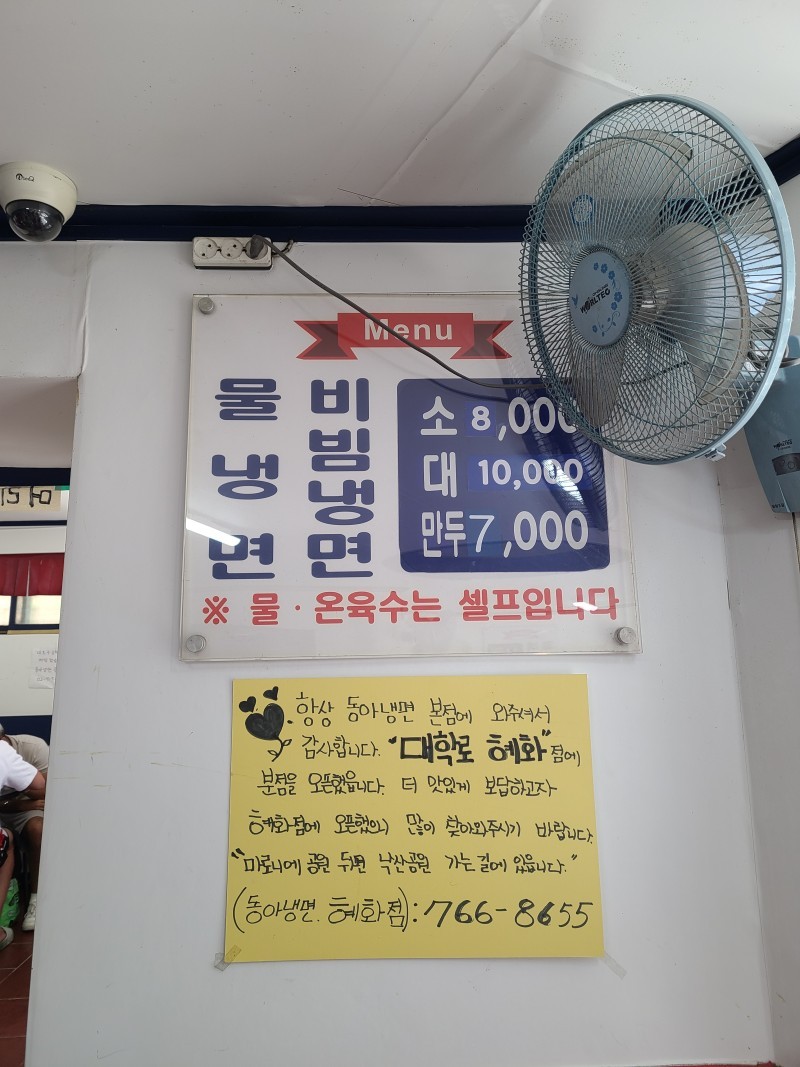 Menu
물냉면
비빔냉면
소 8,000
대 10,000
만두 7,000
※ 물·온육수는 셀프입니다
항상 동아냉면 본점에 와주셔서
감사합니다. "대학로 혜화"점에
분점을 오픈했읍니다. 더 맛있게 보답하고자
혜화점에 오픈했으니 많이 찾아와주시기 바랍니다.
"마로니에 공원 뒤편 낙산공원 가는길에 있읍니다."
(동아냉면. 혜화점):766-8655
WORLTEC